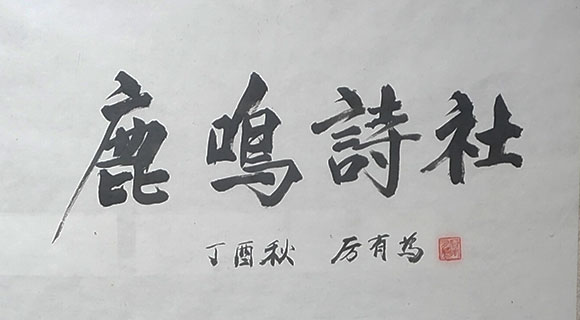 鹿鳴詩社
丁酉秋 厉有為